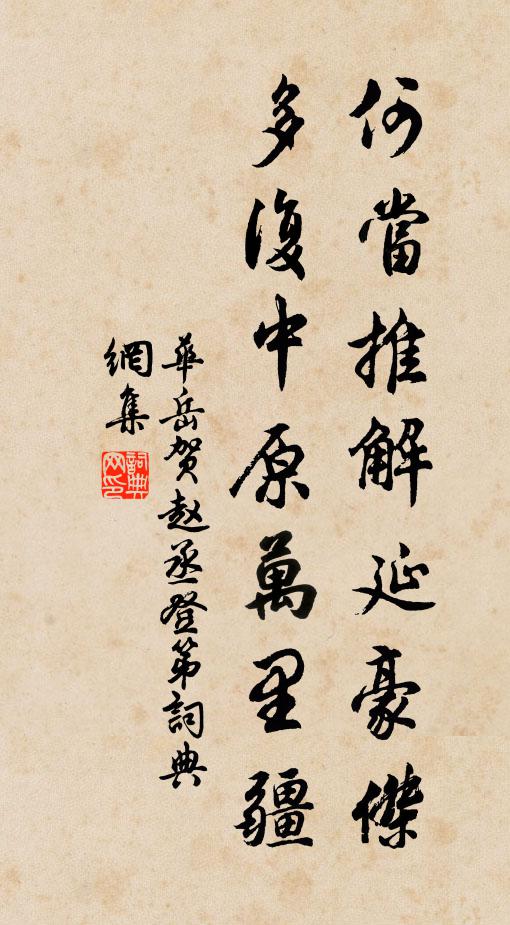 何當推解延豪傑
多復中原萬里疆
華岳賀赵丞登第詞典
網集
詞典网印